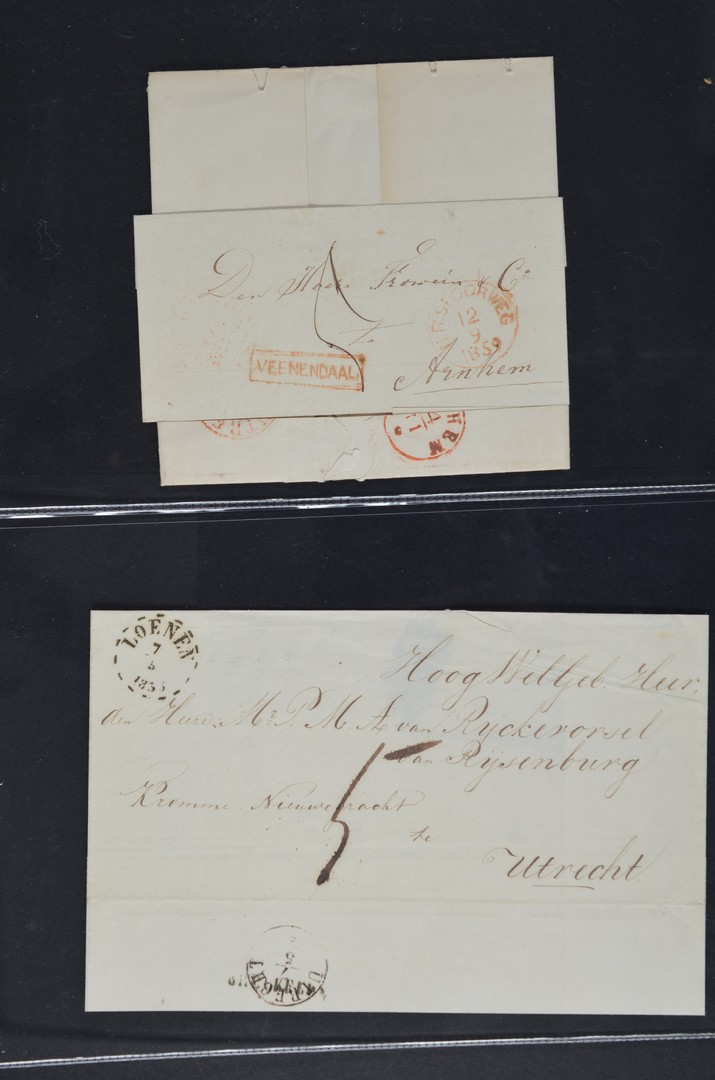 Den Heer Frowein & Co
te
N.R.SPOORWEG
12
9
1859
VEENENDAAL
Arnhem
HEM
LOENEN
7
5
1855
Hoog WelGeb. Heer,
den Heere Mr. P. M. A. van Ryckevorsel
van Rijsenburg
Kromme Nieuwegracht
5
te
Utrecht
UTRECHT